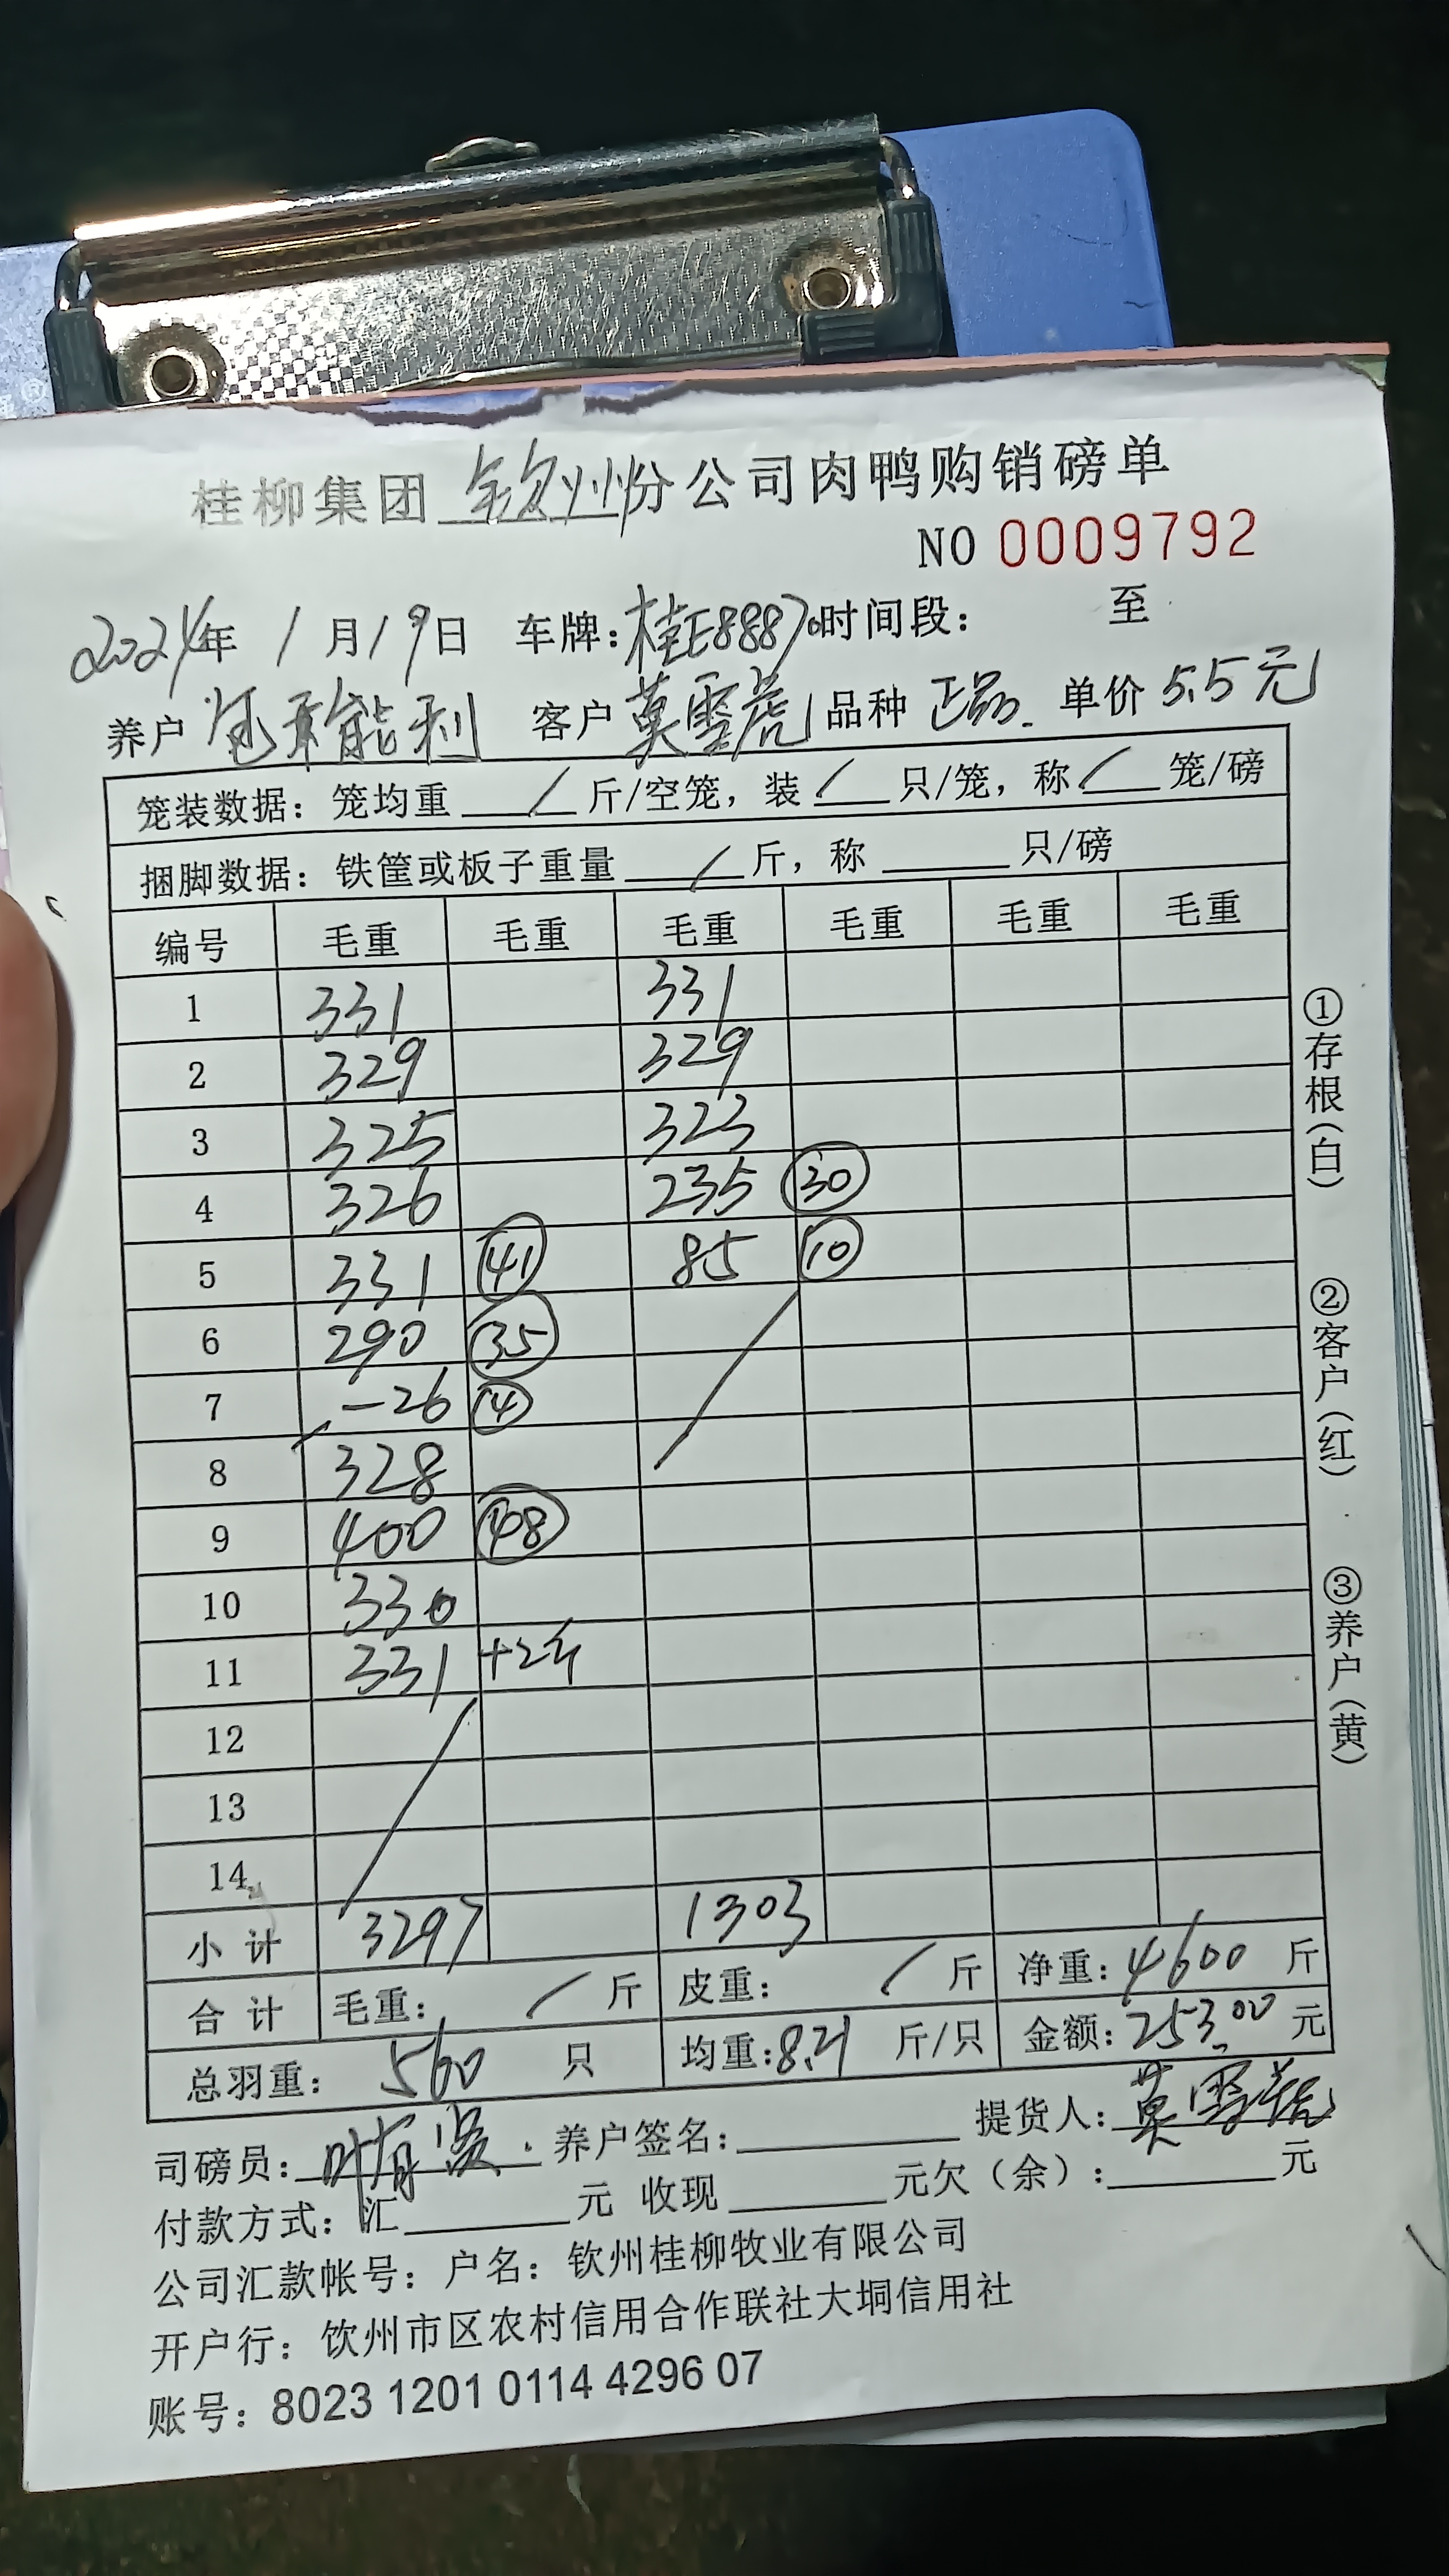 桂柳集团 钦州分公司肉鸭购销磅单
NO 0009792
2024年 1月19日 车牌:桂E88870时间段: 至
养户 能利 客户 莫雪虎 品种 正品. 单价 5.5元
笼装数据:笼均重 / 斤/空笼,装 / 只/笼,称 / 笼/磅
捆脚数据:铁筐或板子重量 / 斤,称 只/磅
编号 毛重 毛重 毛重 毛重 毛重 毛重
1 331 331
2 329 329
3 325 323
4 326 235 ㉚
5 331 ㊶ 85 ⑩
6 290 ㉟
7 -26 ④
8 328
9 400 ㊽
10 330
11 331 +2斤
12
13
14
小计 3297 1303
合计 毛重: / 斤 皮重: / 斤 净重:4600 斤
总羽重: 560 只 均重:8.21 斤/只 金额:253.00 元
司磅员:叶有贤. 养户签名: 提货人:莫雪虎
付款方式:汇 元 收现 元欠(余): 元
公司汇款帐号:户名:钦州桂柳牧业有限公司
开户行:钦州市区农村信用合作联社大垌信用社
账号:8023 1201 0114 4296 07
①存根(白)
②客户(红)
③养户(黄)